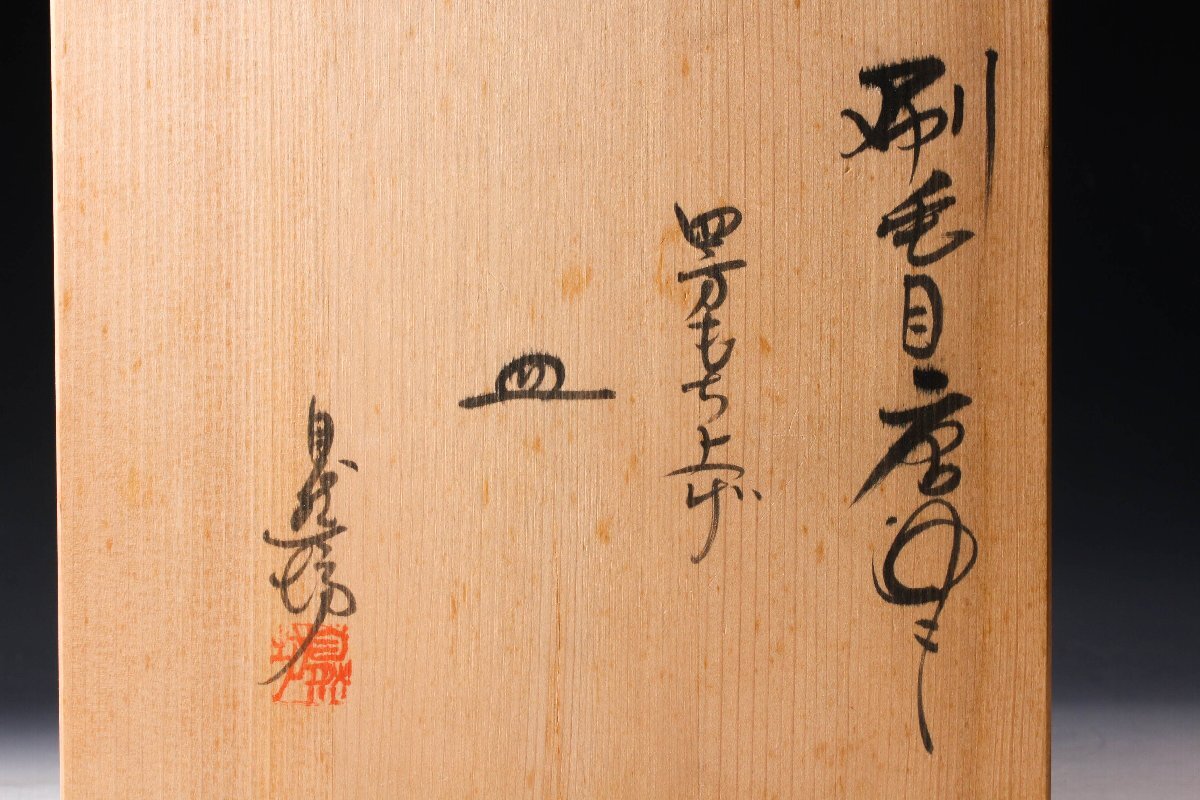 刷毛目唐津
四方もち上げ
皿
自然坊